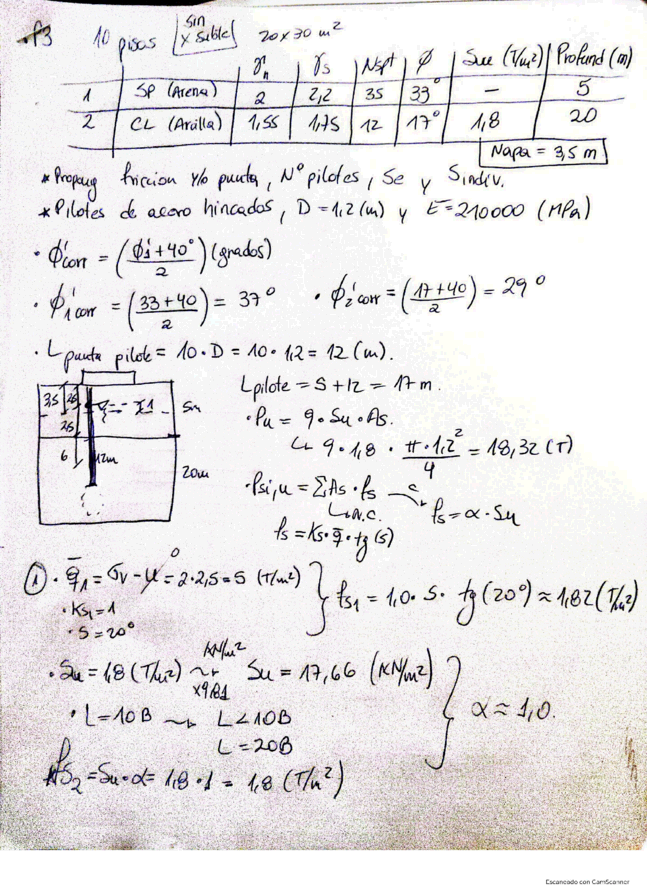 P3 10 pisos sin x suble 20x30 m²
γn γs Nspt φ Su (T/m²) Profund (m)
1 SP (Arena) 2 2,2 35 33° — 5
2 CL (Arcilla) 1,55 1,75 12 17° 1,8 20
Napa = 3,5 m
* Propong friccion y/o punta, N° pilotes, Se y Sindiv.
* Pilotes de acero hincados, D=1,2 (m) y E=210000 (MPa)
• φ'corr = (φ'1+40°/2) (grados)
• φ'1corr = (33+40/2) = 37° • φ'2corr = (17+40/2) = 29°
• L punta pilote = 10•D = 10•1,2 = 12 (m).
Lpilote = 5+12 = 17 m.
• Pu = 9•Su•As.
↳ 9•1,8•π•1,2²/4 = 18,32 (T)
• Psi,u = ΣAs•fs
c fs = α•Su
↳ N.C.
fs = Ks•q̄•tg(δ)
3,5 2,5 1 5m
2,5
6 12m 20m
① • q̄1 = σv - μ = 2•2,5 = 5 (T/m²)
0
• Ks1 = 1
• δ = 20°
fs1 = 1,0•5•tg(20°) ≈ 1,82 (T/m²)
• Su = 1,8 (T/m²) KN/m² x9,81 Su = 17,66 (KN/m²)
• L = 10B L<10B
L = 20B
α ≈ 1,0.
fs2 = Su•α = 1,8•1 = 1,8 (T/m²)
Escaneado con CamScanner